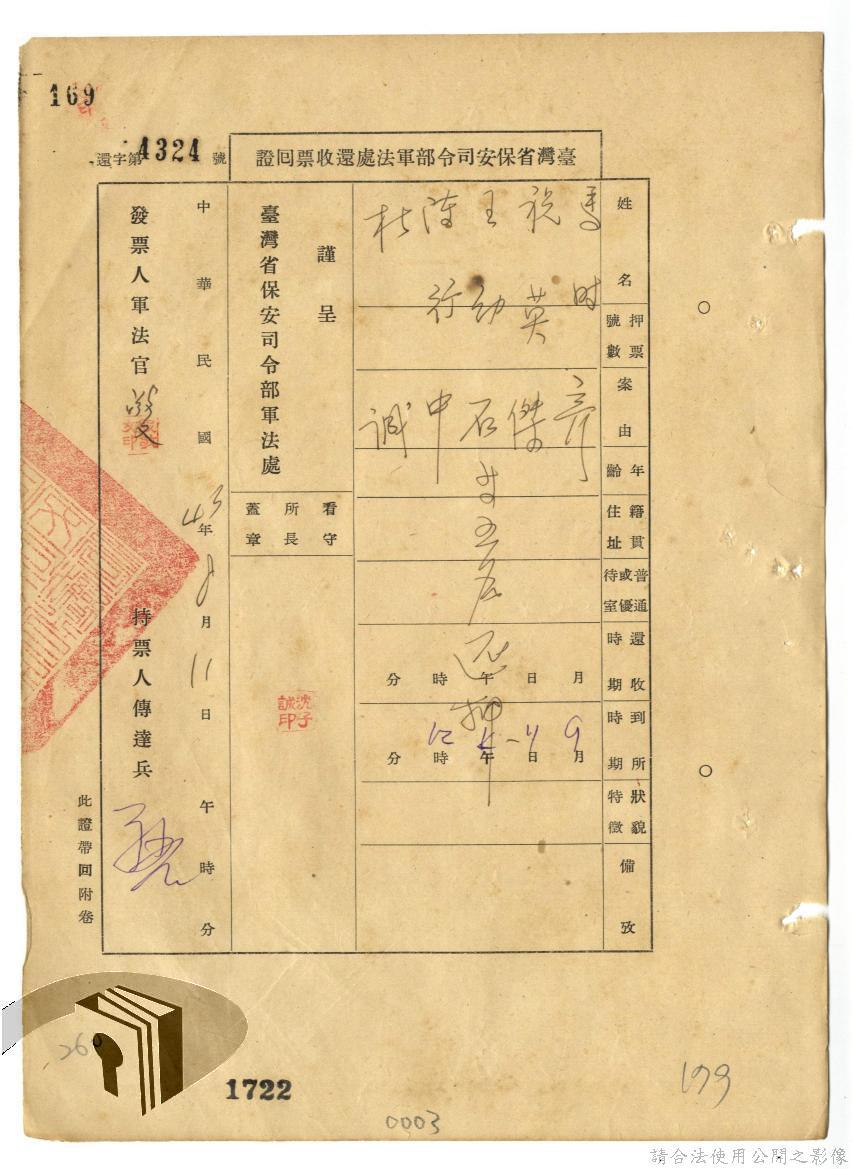 169
還字第4324號
臺灣省保安司令部軍法處還收票回證
姓名
馬時彥
祝英傑
王幼石
陳行中
杜誠
等五名還押
押票號數
案由
年齡
籍貫住址
普通或優待室
還收時期
月 日 午 時 分
到所時期
9月11日午時分
狀貌特徵
備攷
謹呈
臺灣省保安司令部軍法處
看守所長蓋章
沈子誠印
中華民國43年 月11日 午 時 分
發票人軍法官
持票人傳達兵
此證帶回附卷
260
1722
0003
199
請合法使用公開之影像